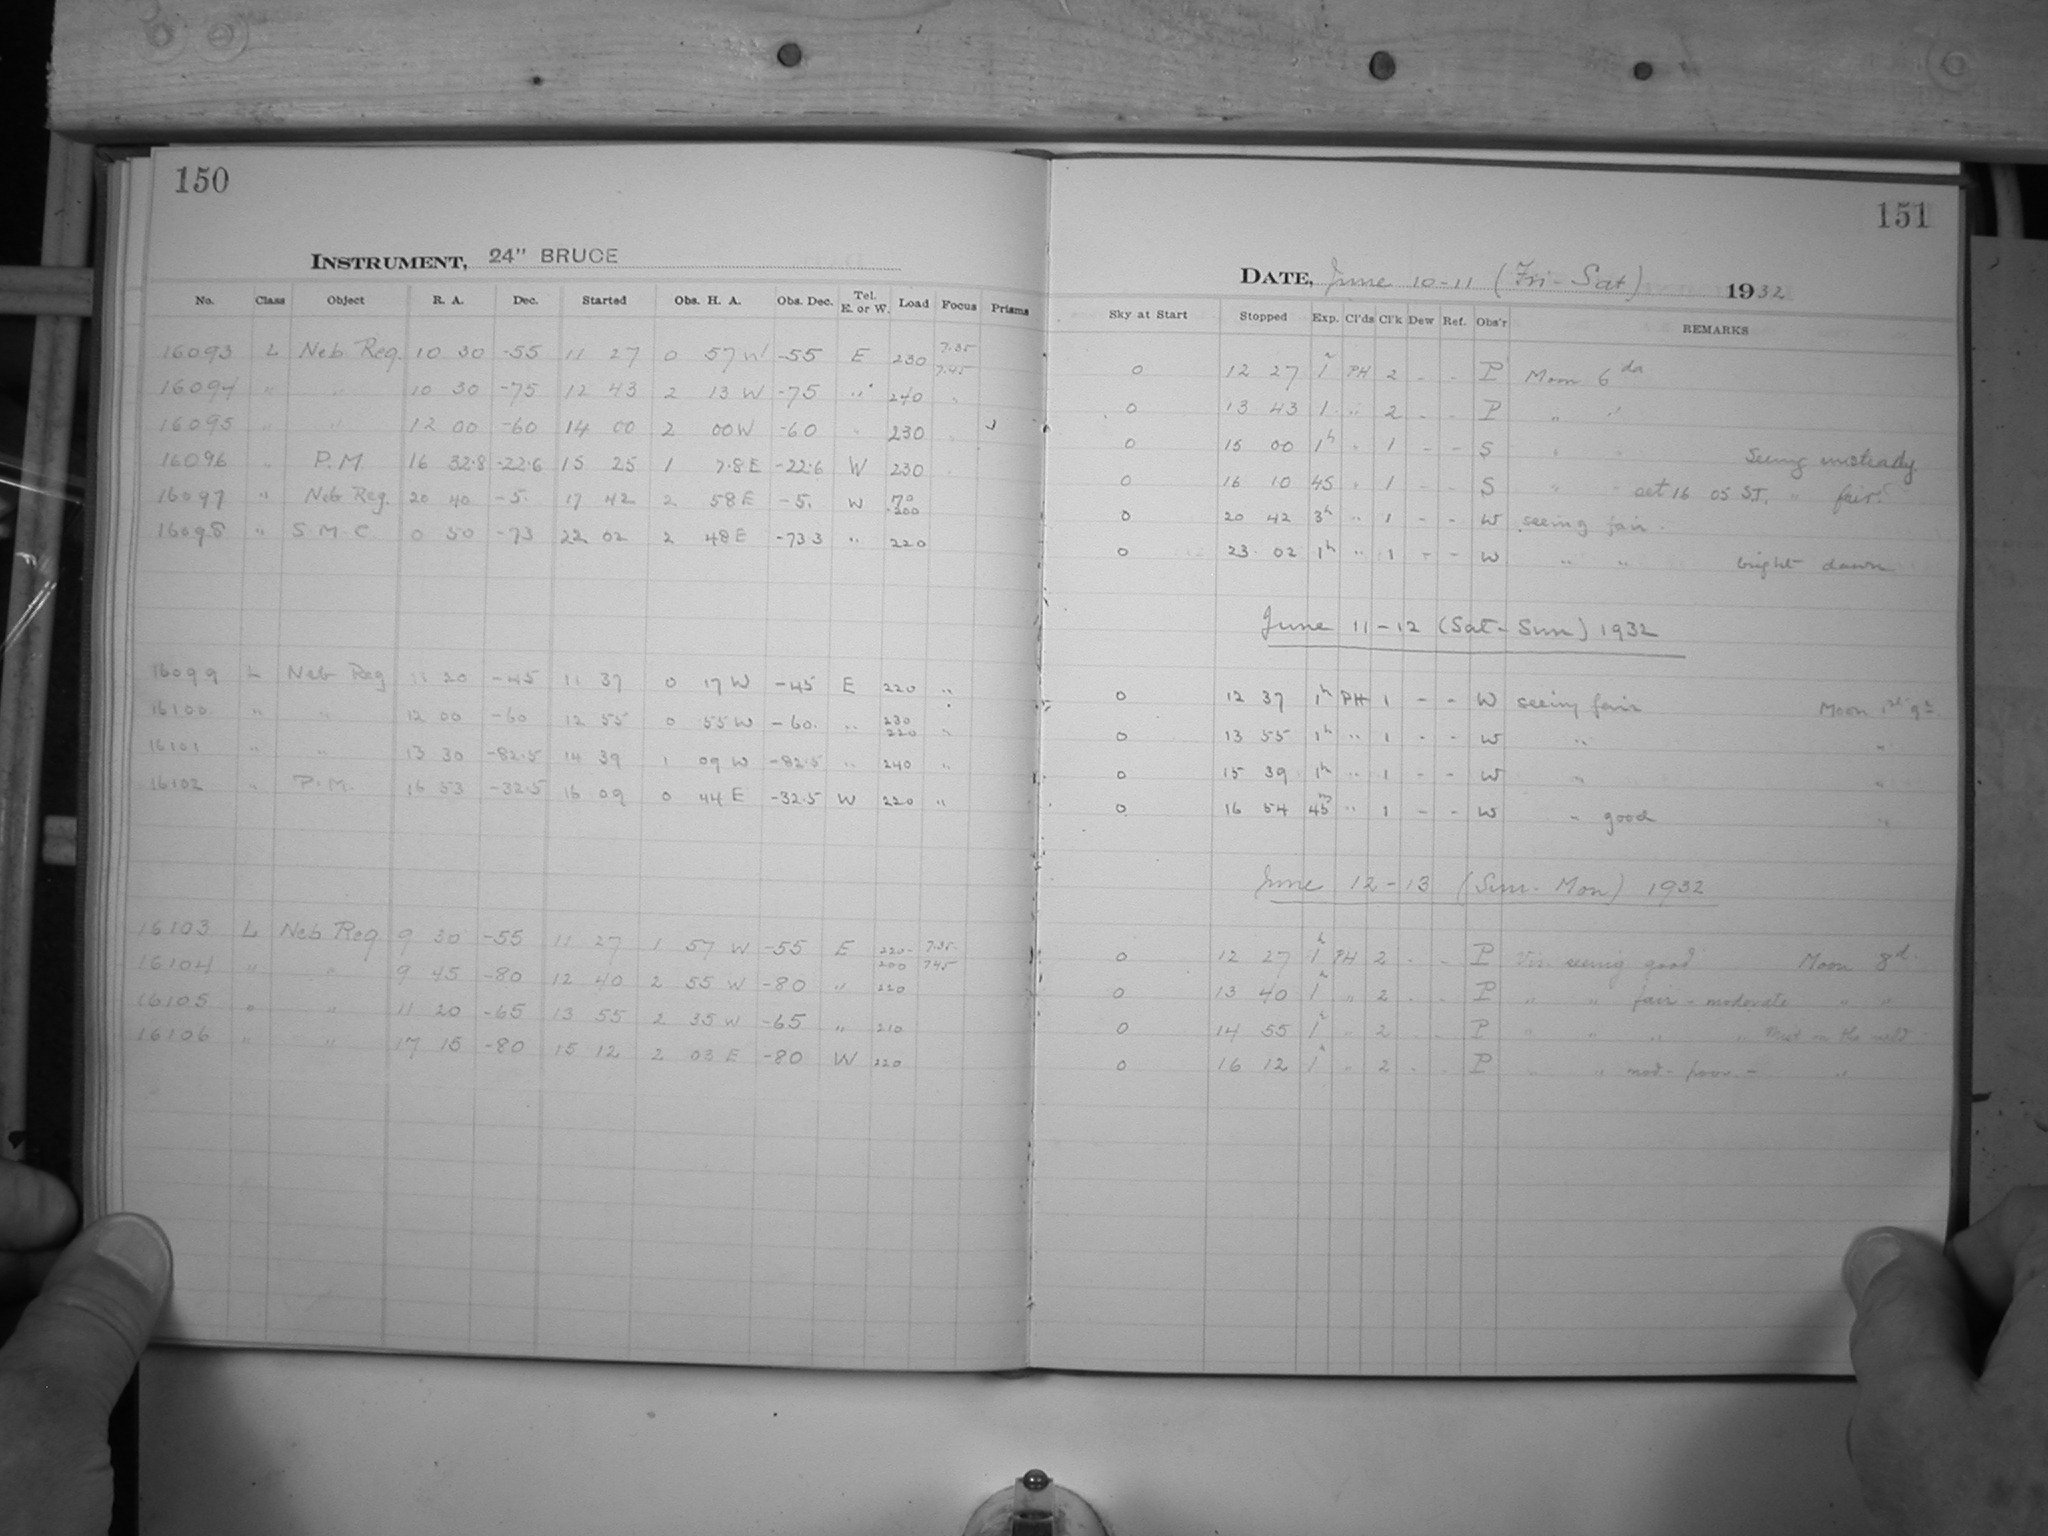 150
INSTRUMENT, 24" BRUCE
No. Class Object R. A. Dec. Started Obs. H. A. Obs. Dec. Tel. E. or W. Load Focus Prisms
16093 L Neb Reg. 10 30 -55 11 27 0 57 W -55 E 230 7.35 7.45
16094 " " 10 30 -75 12 43 2 13 W -75 " 240 "
16095 " " 12 00 -60 14 00 2 00 W -60 " 230 "
16096 " P.M. 16 32.8 -22.6 15 25 1 7.8 E -22.6 W 230 "
16097 " Neb Reg. 20 40 -5. 17 42 2 58 E -5. W 200
16098 " S.M.C 0 50 -73 22 02 2 48 E -73.3 " 220
16099 L Neb Reg 11 20 -45 11 37 0 17 W -45 E 220 "
16100 " " 12 00 -60 12 55 0 55 W -60. " 230 220 "
16101 " " 13 30 -82.5 14 39 1 09 W -82.5 " 240 "
16102 " P.M. 16 53 -32.5 16 09 0 44 E -32.5 W 220 "
16103 L Neb Reg. 9 30 -55 11 27 1 57 W -55 E 220- 200 7.35- 7.45
16104 " " 9 45 -80 12 40 2 55 W -80 " 220
16105 " " 11 20 -65 13 55 2 35 W -65 " 210
16106 " " 17 15 -80 15 12 2 03 E -80 W 220
151
DATE, June 10-11 (Fri-Sat) 1932
Sky at Start Stopped Exp. Cl'ds Cl'k Dew Ref. Obs'r REMARKS
0 12 27 1h PH 2 - - P Moon 6 da
0 13 43 1 " 2 - - P " "
0 15 00 1h " 1 - - S " " Seeing unsteady.
0 16 10 45 " 1 - - S " " set 16 05 S.T. " fair.
0 20 42 3h " 1 - - W seeing fair.
0 23 02 1h " 1 - - W " " bright dawn
June 11-12 (Sat-Sun) 1932
0 12 37 1h PH 1 - - W seeing fair Moon 1st qr
0 13 55 1h " 1 - - W " "
0 15 39 1h " 1 - - W " "
0 16 54 45m " 1 - - W " good "
June 12-13 (Sun-Mon) 1932
0 12 27 1h PH 2 - - P Vis. seeing good Moon 8d.
0 13 40 1h " 2 - - P " " fair-moderate " "
0 14 55 1h " 2 - - P " " " " mist on the
0 16 12 1h " 2 - - P " " mod-poor - "